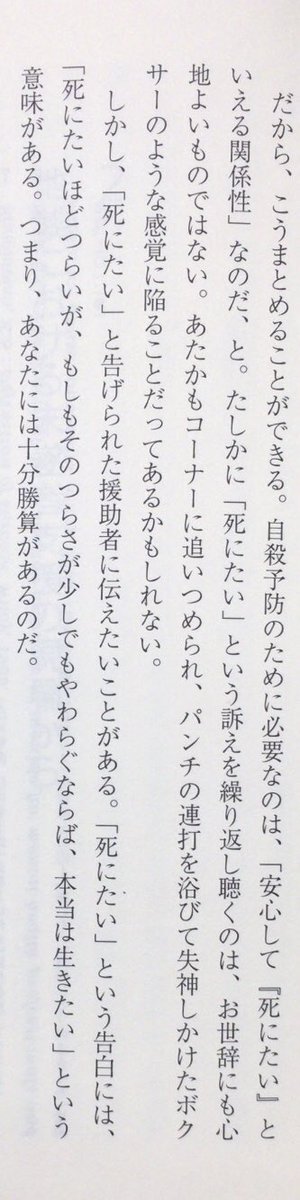 だから、こうまとめることができる。自殺予防のために必要なのは、「安心して『死にたい』と
いえる関係性」なのだ、と。たしかに「死にたい」という訴えを繰り返し聴くのは、お世辞にも心
地よいものではない。あたかもコーナーに追いつめられ、パンチの連打を浴びて失神しかけたボク
サーのような感覚に陥ることだってあるかもしれない。
しかし、「死にたい」と告げられた援助者に伝えたいことがある。「死にたい」という告白には、
「死にたいほどつらいが、もしもそのつらさが少しでもやわらぐならば、本当は生きたい」という
意味がある。つまり、あなたには十分勝算があるのだ。